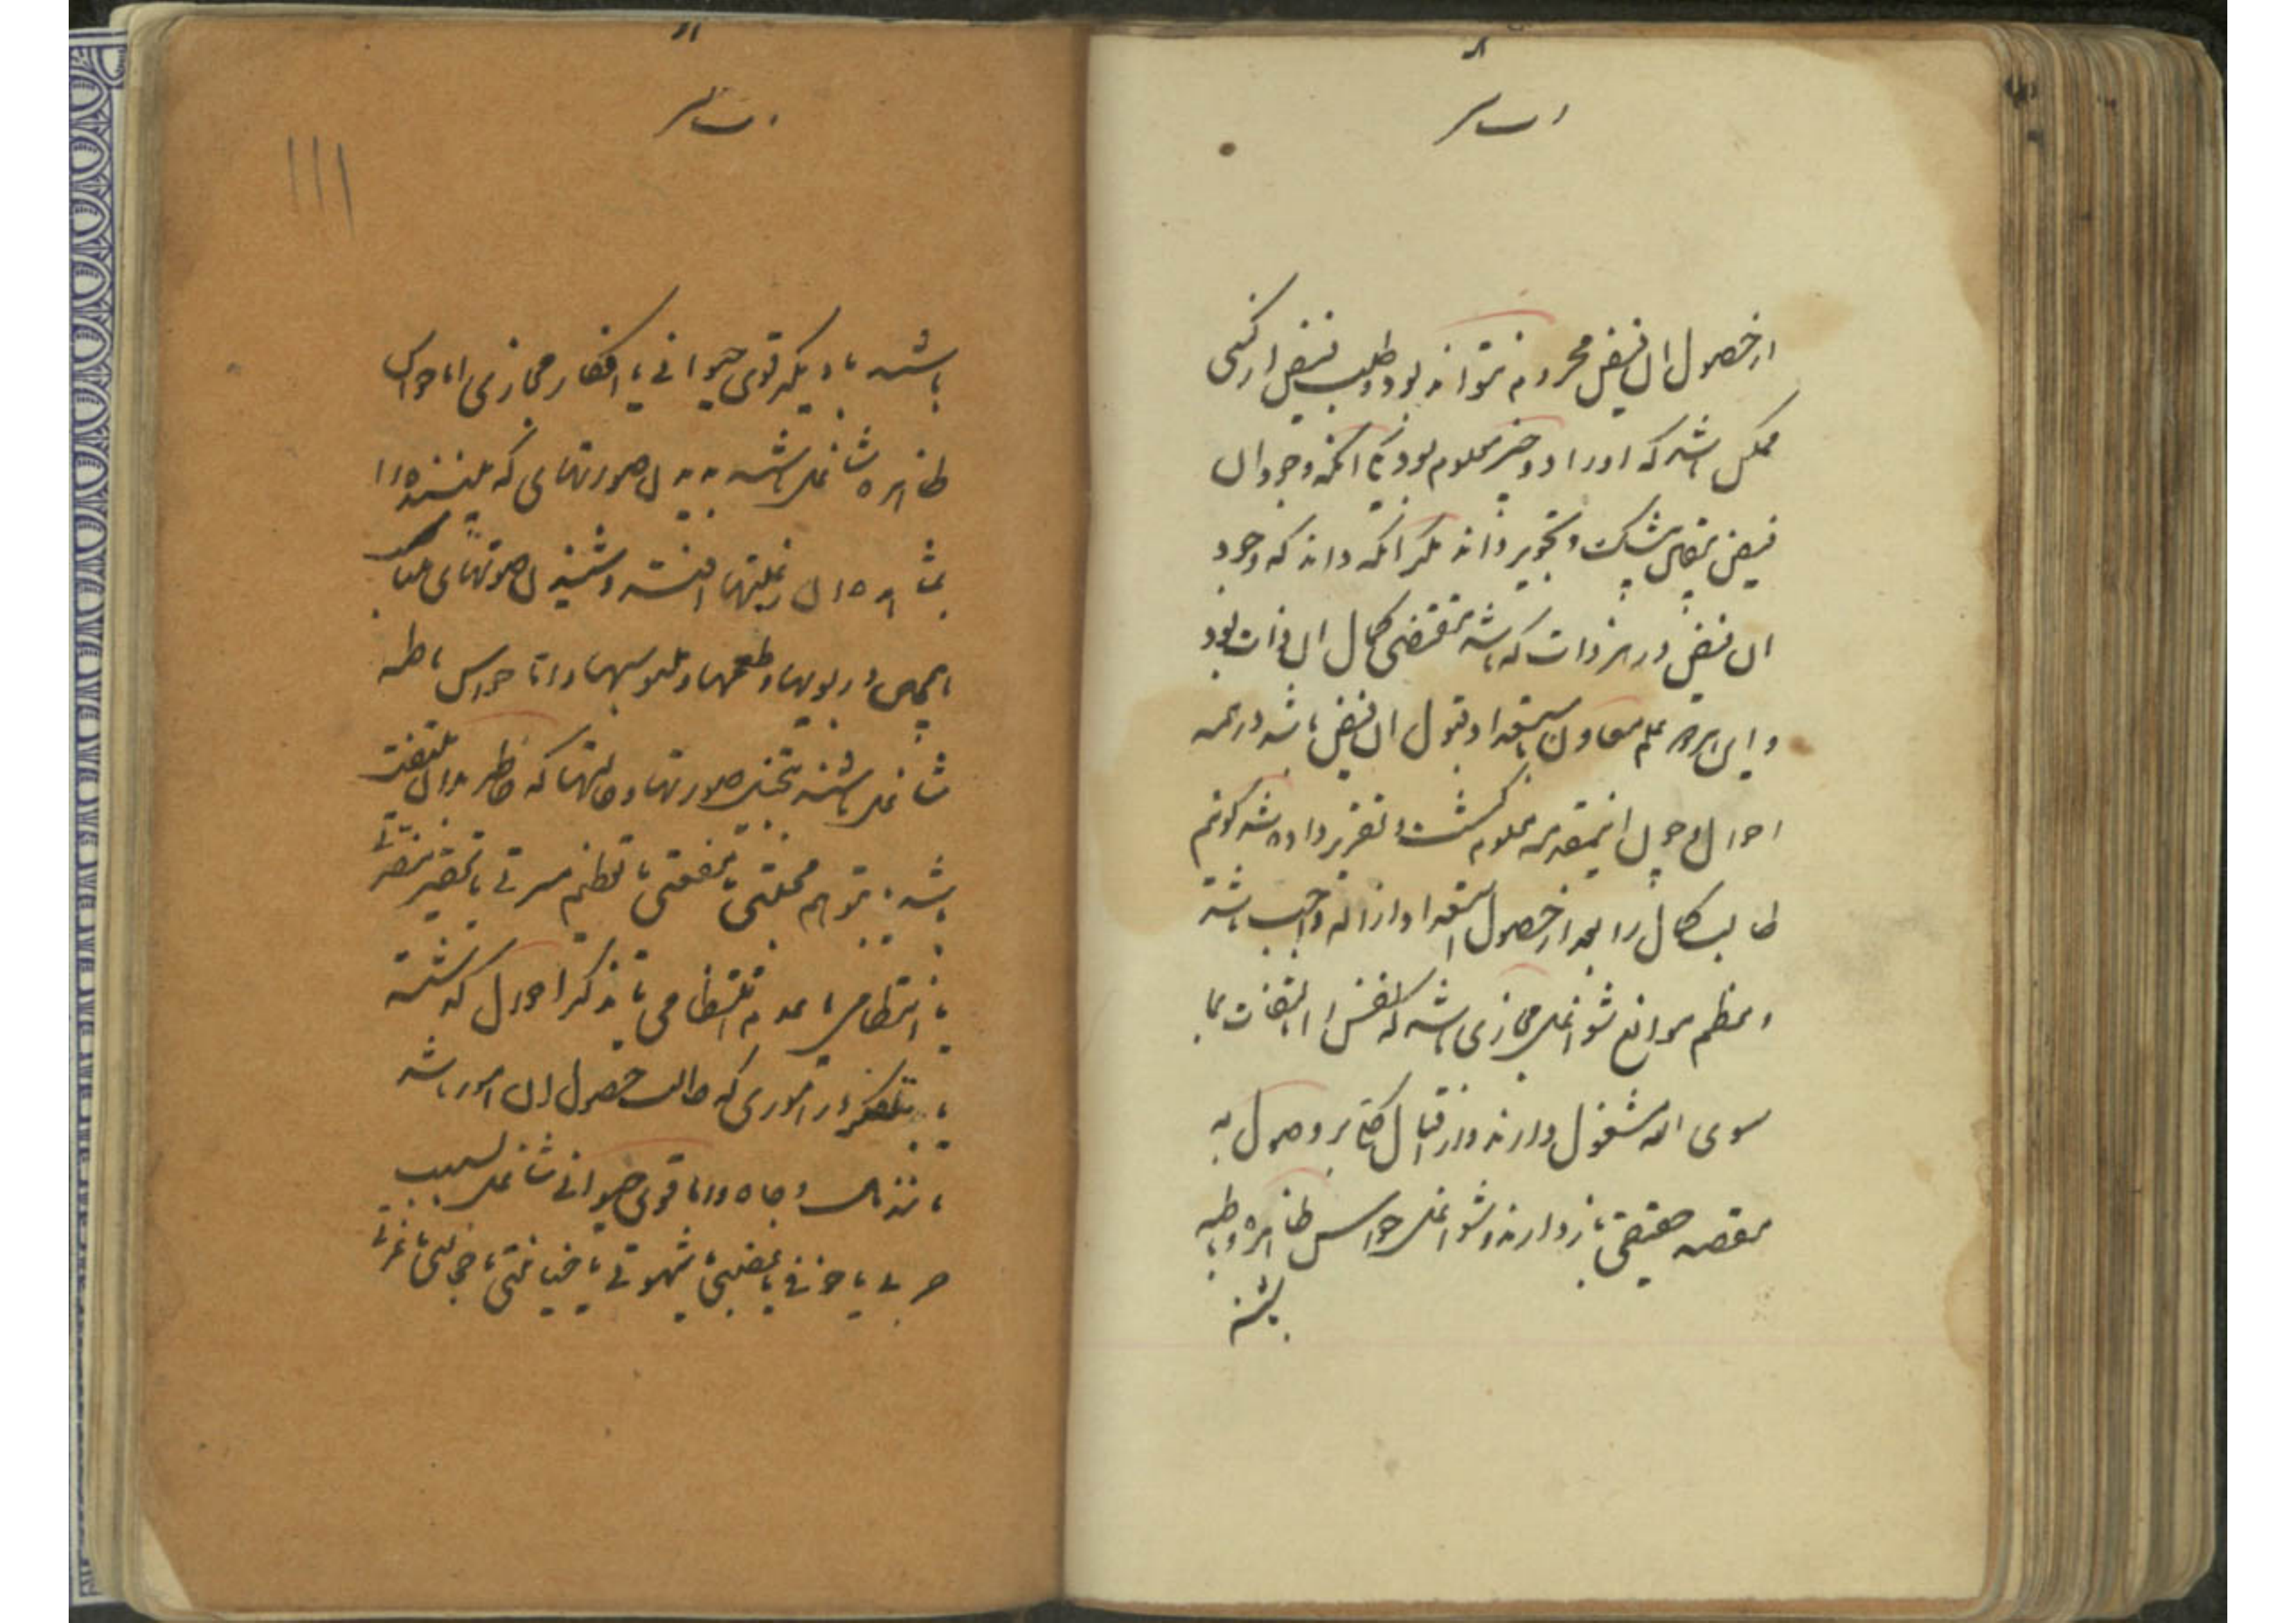 از حصول آن فیض محروم نتواند بود و طلب فیض از کسی
ممکن باشد که او را دو چیز معلوم بود یکی آنکه وجود آن
فیض بیقین بیشک و تجویز داند دیگر آنکه داند که وجود
آن فیض در هر ذات که باشد مقتضی کمال آن ذات بود
و این هر دو علم معاون استعداد قبول آن فیض باشد در همه
احوال و چون این مقدمه معلوم گشت و تقریر داده شد گوئیم
طالب کمال را بعد از حصول استعداد ازاله واجب باشد
و معظم موانع شواغل مجازی باشد که نفس را بالتفات بما
سوی الله مشغول دارند و از اقبال کلی بر وصول به
مقصد حقیقی باز دارند و شواغل حواس ظاهره و باطنه
باشد یا دیگر قوی حیوانی یا افکار مجازی اما حواس
ظاهره شاغل باشد بدیدن صورتهای که بیننده را
بمشاهده آن رغبتها افتد و شنیدن صوتهای متناسب
و همچنین در بویها و طعمها و ملموسها و اما حواس باطنه
شاغل باشند بتخیل صورتها و حالتها که خاطر بدان ملتفت
باشد یا بتوهم محبتی یا بغضی یا تعظیم مسرتی یا تحقیر مضرتی
یا انتظامی یا عدم انتظامی یا تذکر احوال گذشته
یا بتفکر در اموری که طالب حصول آن امور باشد
مانند مال و جاه و اما قوی حیوانی شاغل بسبب
حزنی یا خوفی یا غضبی یا شهوتی یا خیانتی یا خجالتی یا غیرتی